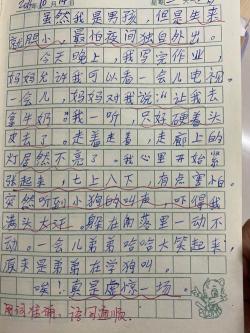 虽然我是男孩，但是
胆小，最怕夜间独自外出。
今天晚上，我写完作业，
妈妈允许我可以看一会儿电视。
一会儿，妈妈对我说：“让我去
拿牛奶。”我一听，只好硬着头
皮去了。走着走着，走廊上的
灯居然不亮了。我心里开始紧
张起来，七上八下，有点害怕。
突然听到小狗的叫声，吓得我
满头大汗。躲在角落里一动不
动。一会儿弟弟哈哈大笑起来，
原来是弟弟在学狗叫。
唉！真是虚惊一场。
用词准确，语句通顺。